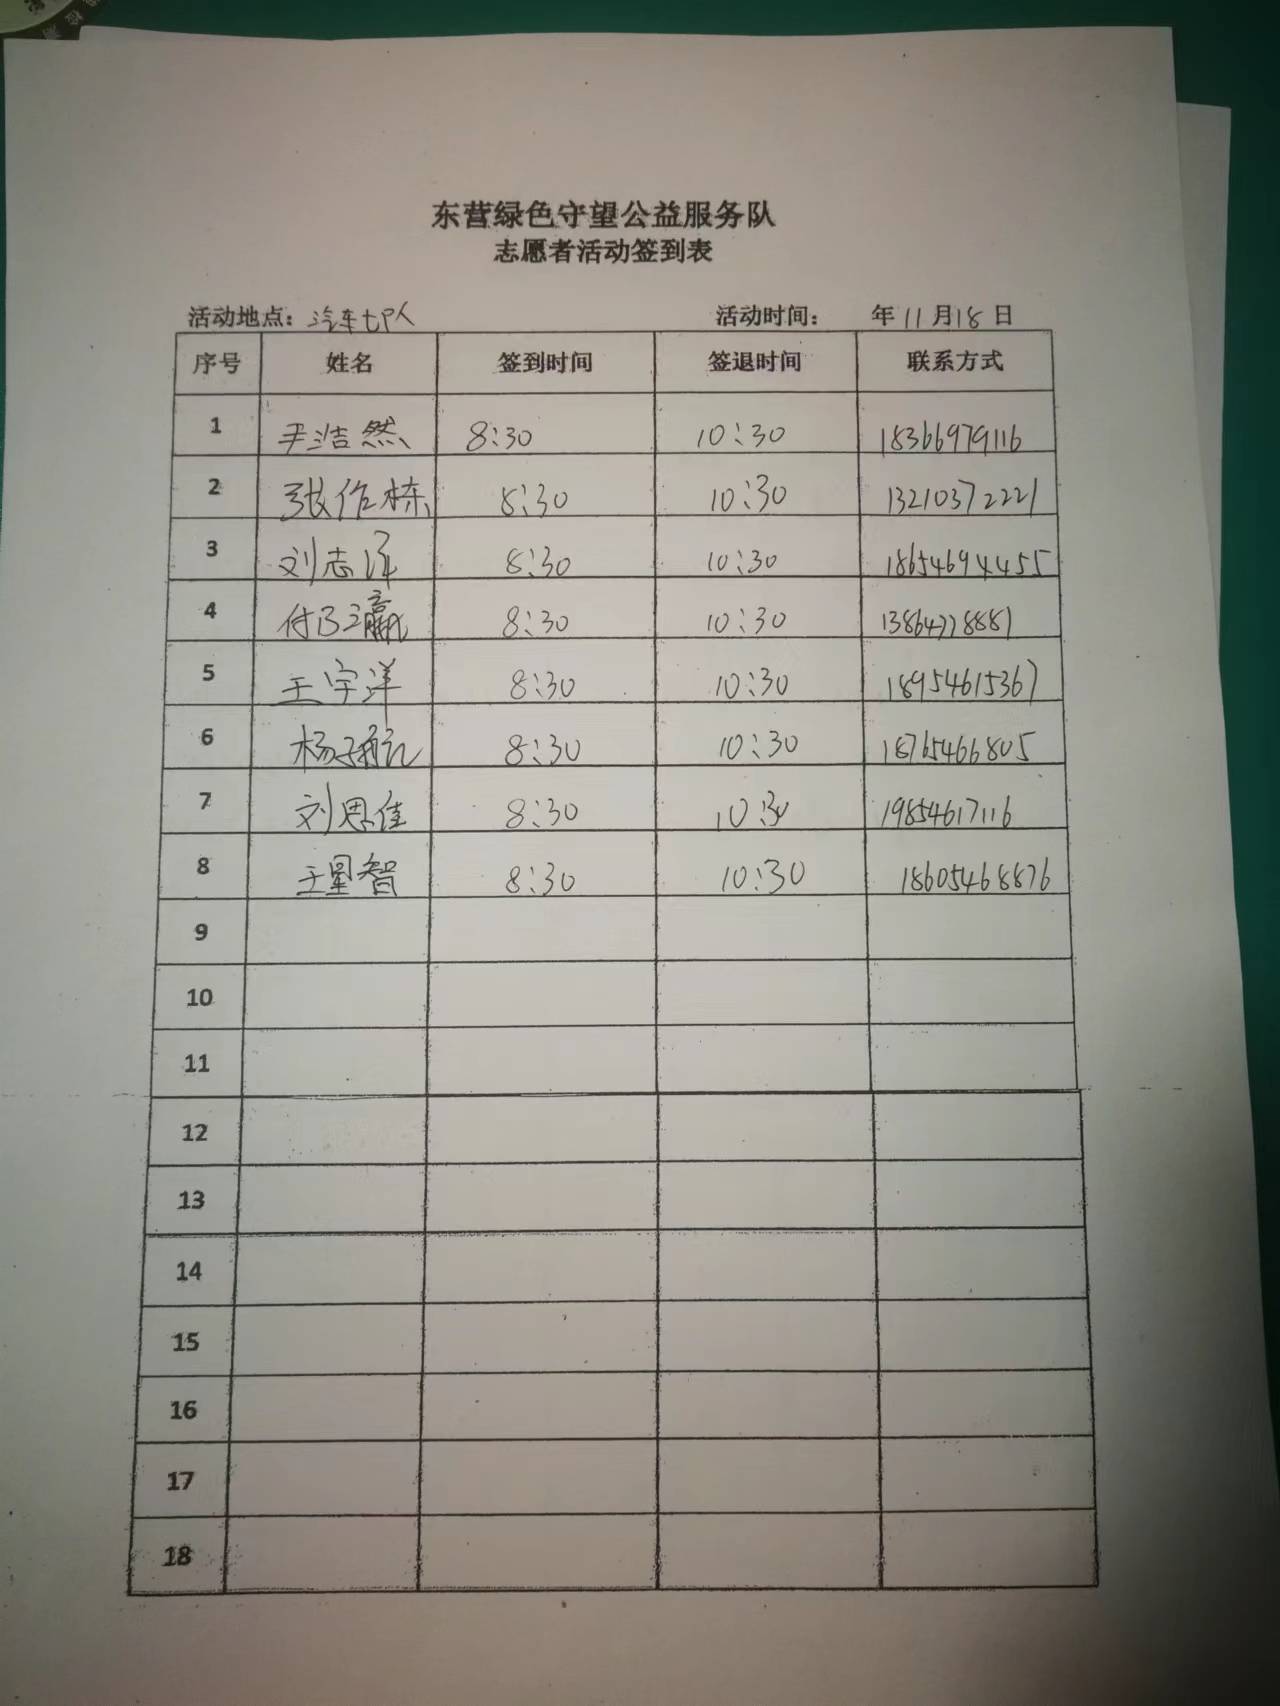 东营绿色守望公益服务队
志愿者活动签到表
活动地点：汽车 活动时间： 年11月18日
序号 姓名 签到时间 签退时间 联系方式
1 尹浩然 8:30 10:30 18366979116
2 张作栋 8:30 10:30 13210372221
3 刘志泽 8:30 10:30 18654694455
4 付 赢 8:30 10:30 13864778881
5 王宇洋 8:30 10:30 18954615367
6 杨子航 8:30 10:30 18765466805
7 刘思佳 8:30 10:30 19854617116
8 王星智 8:30 10:30 18605468876
9
10
11
12
13
14
15
16
17
18